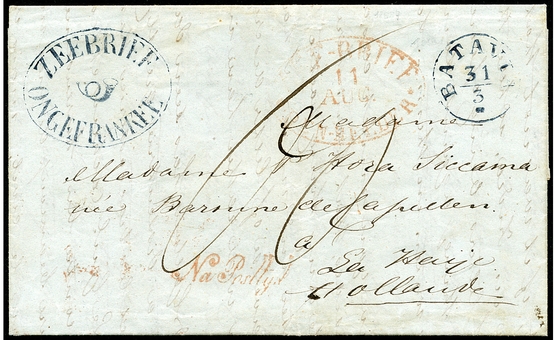 ZEEBRIEF
ONGEFRANKEE
-BRIEF
11
AUG
BATAV
31
3
Madame
Madame Hora Siccama
née Baronne de Capellen
a
La Haije
Hollande
Na Posttyd